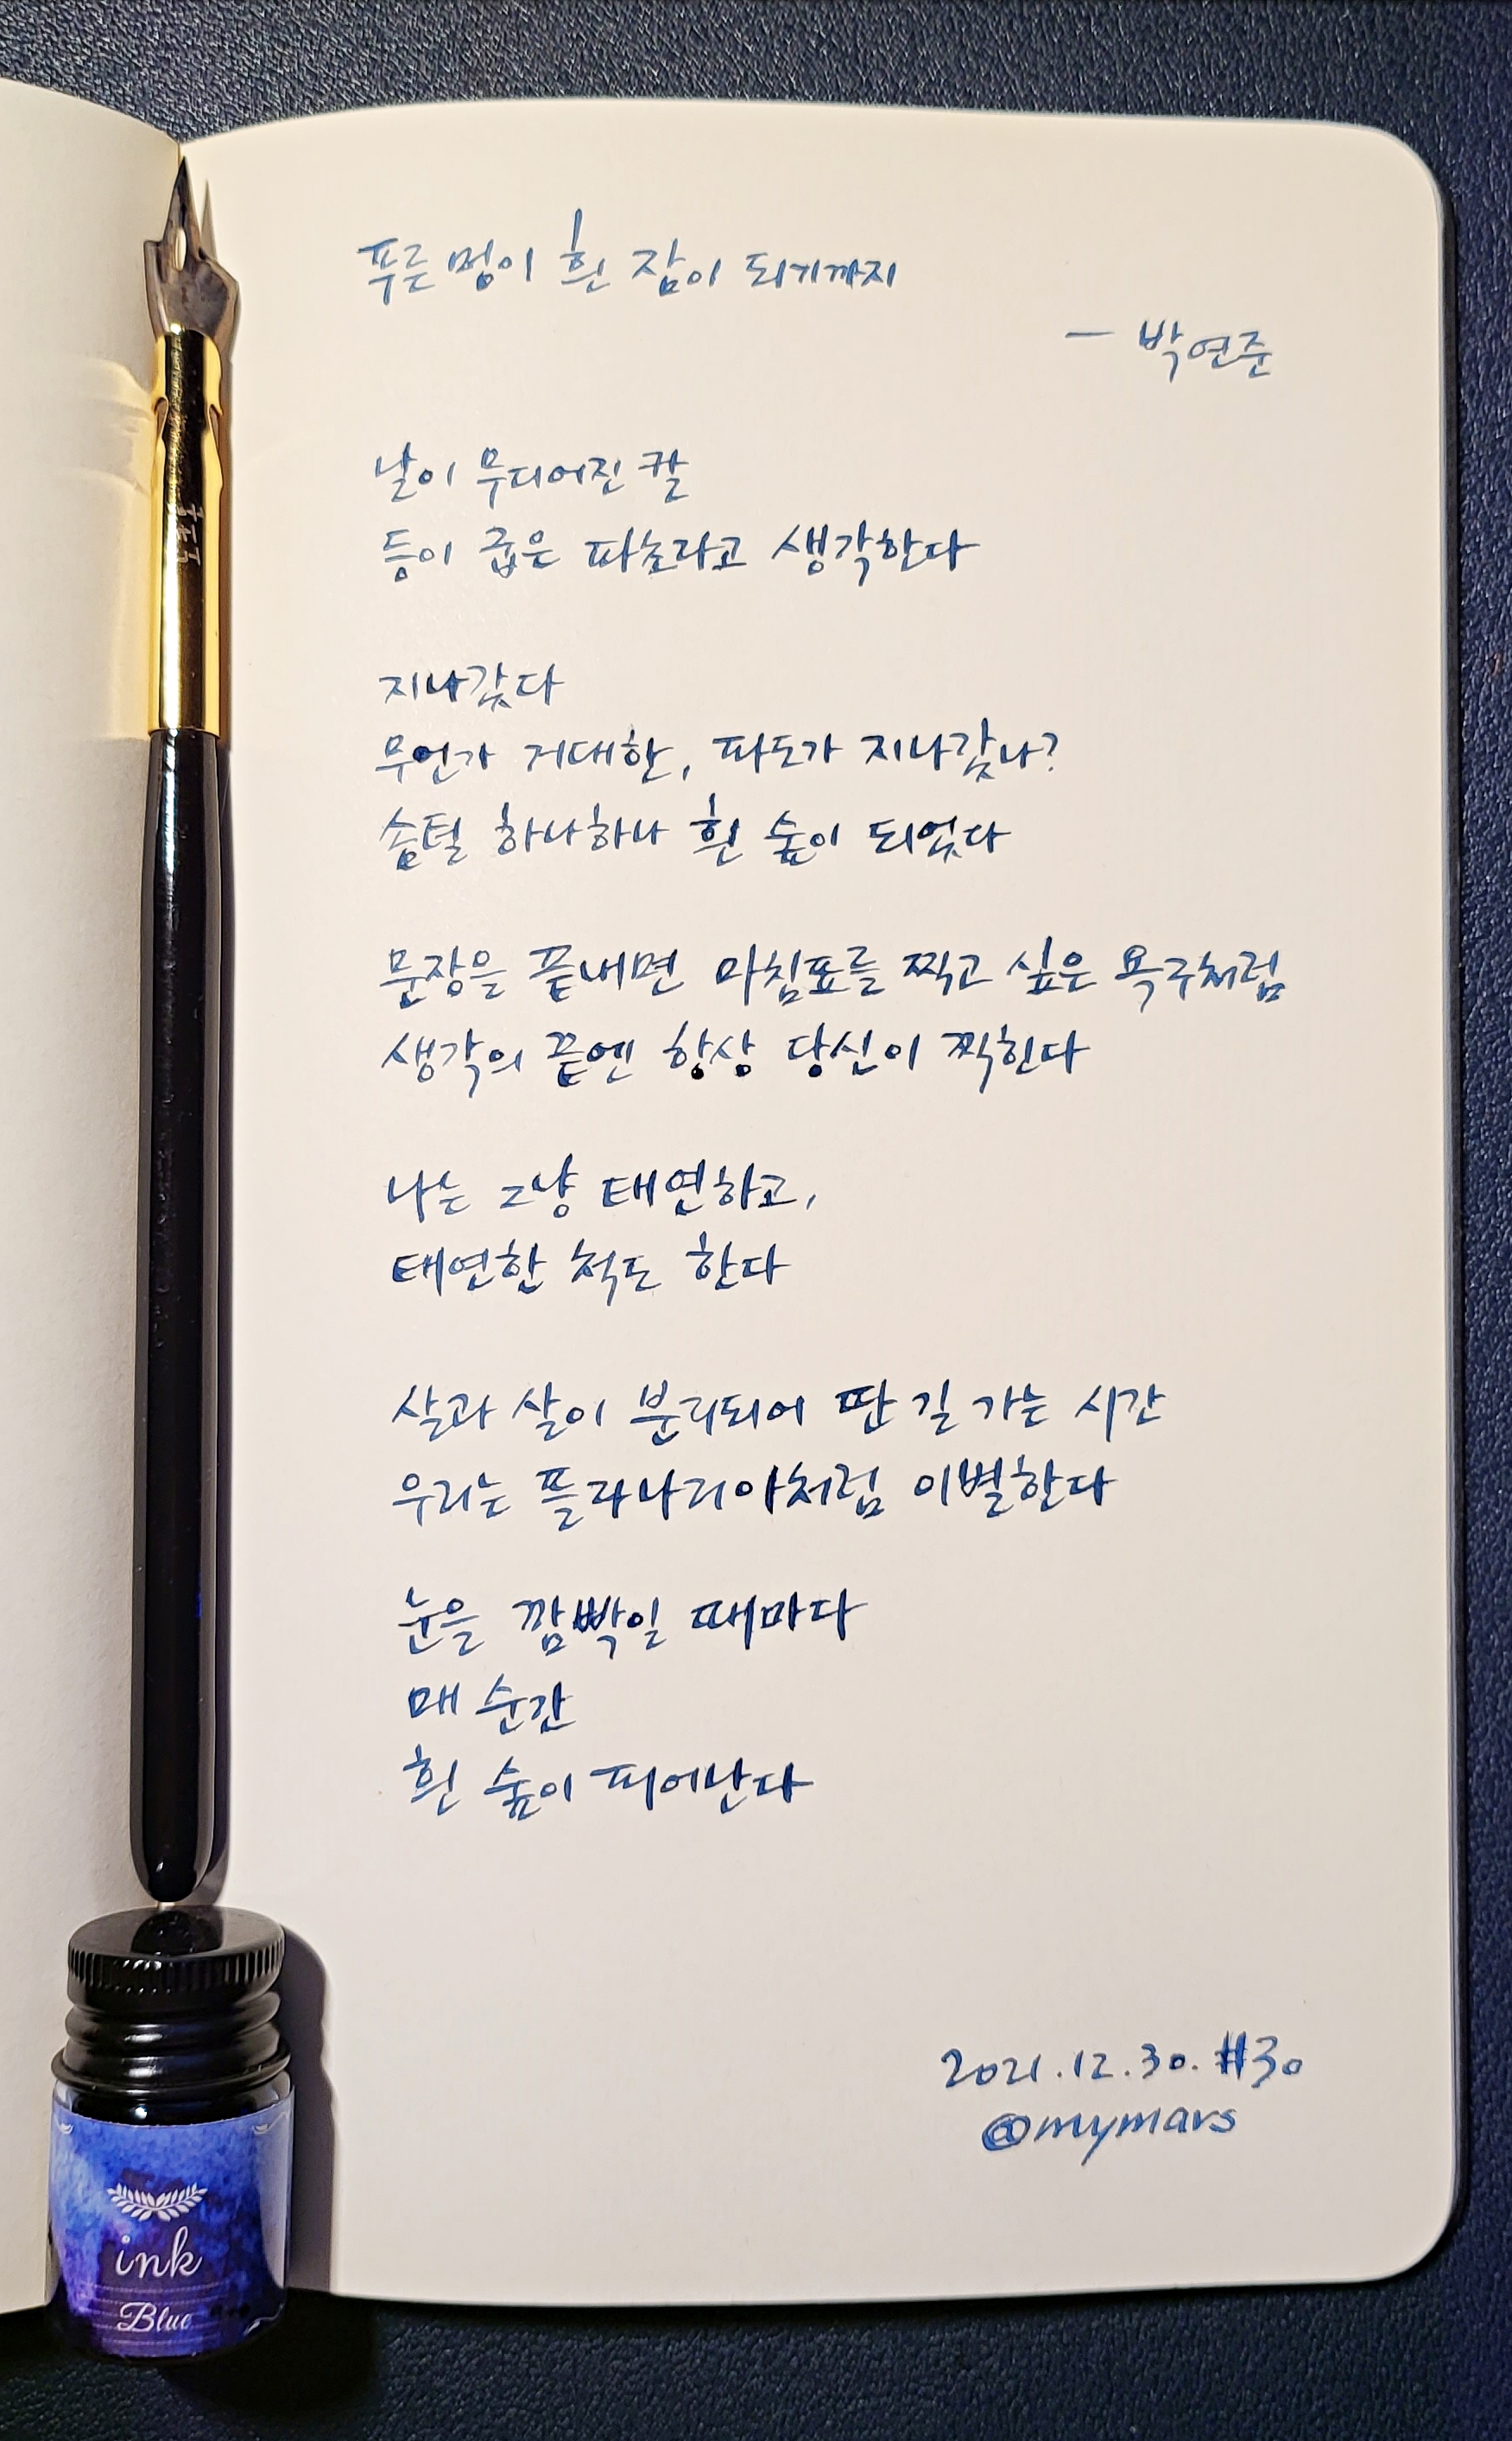 푸른 멍이 흰 잠이 되기까지
— 박연준
날이 무디어진 칼
등이 굽은 파초라고 생각한다
지나갔다
무언가 거대한, 파도가 지나갔나?
솜털 하나하나 흰 숲이 되었다
문장을 끝내면 마침표를 찍고 싶은 욕구처럼
생각의 끝엔 항상 당신이 찍힌다
나는 그냥 태연하고,
태연한 척도 한다
살과 살이 분리되어 딴 길 가는 시간
우리는 플라나리아처럼 이별한다
눈을 깜빡일 때마다
매 순간
흰 숲이 피어난다
2021.12.30. #30
@mymars
ink
Blue